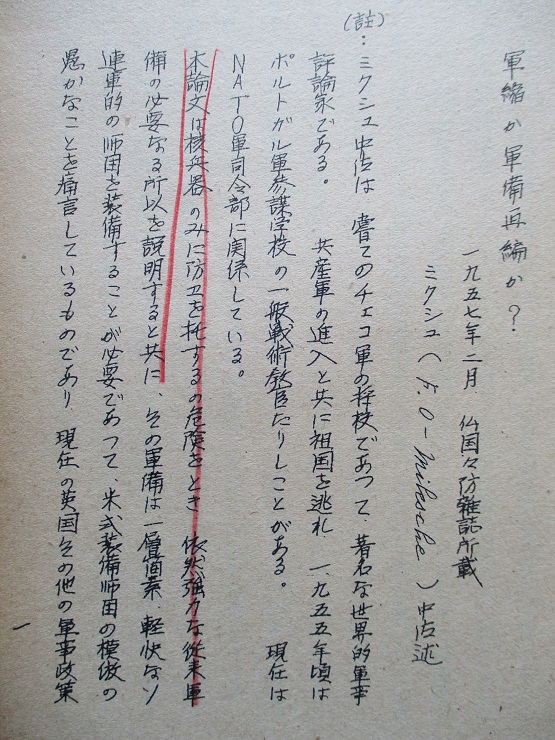 軍縮か軍備再編か?
一九五七年二月 仏国々防雑誌所載
ミクシュ(F.O-Miksche)中佐述
(註):ミクシュ中佐は 嘗てのチェコ軍の将校であつて、著名な世界的軍事
評論家である。 共産軍の進入と共に祖国を逃れ 一九五五年頃は
ポルトガル軍参謀学校の一般戦術教官たりしことがある。 現在は
NATO軍司令部に関係している。
本論文は核兵器のみに防卫を托するの危険をとき 依然強力な従来軍
備の必要なる所以を説明すると共に、その軍備は一層簡素、軽快なソ
連軍的の師団を装備することが必要であつて、米式装備師団の模倣の
愚かなことを痛言しているものであり 現在の英国その他の軍事政策
一